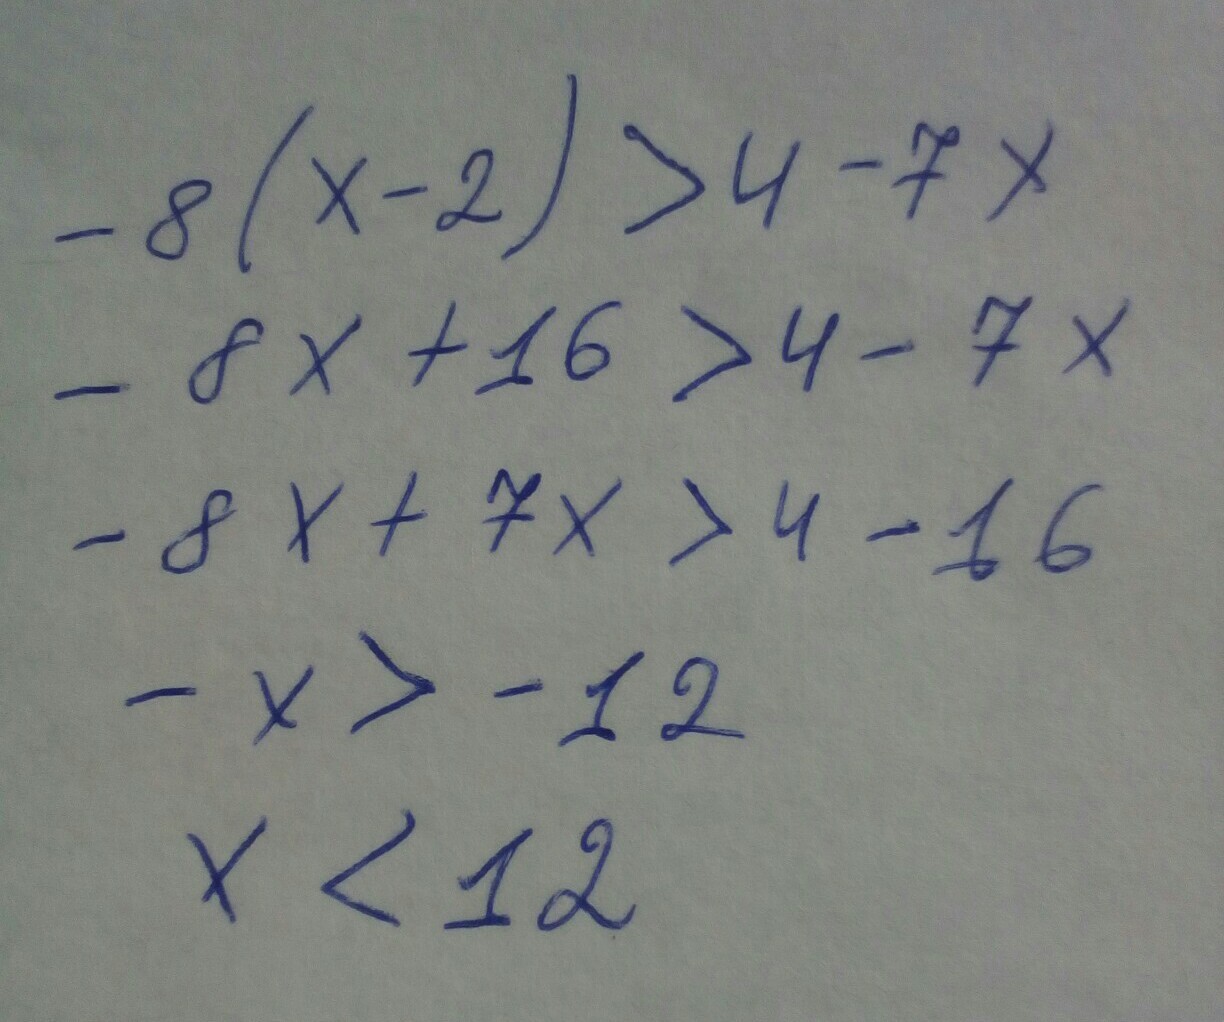 -8(x-2)>4-7x
-8x+16>4-7x
-8x+7x>4-16
-x>-12
x<12